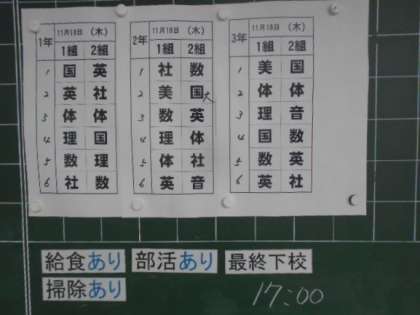 1年 11月18日 (木)
1組 2組
1 国 英
2 英 社
3 体 体
4 理 国
5 数 理
6 社 数
2年 11月18日 (木)
1組 2組
1 社 数
2 美 国
3 数 英
4 理 体
5 体 社
6 英 音
3年 11月18日 (木)
1組 2組
1 美 国
2 体 体
3 理 音
4 国 数
5 数 英
6 英 社
給食あり 部活あり 最終下校
掃除あり 17:00